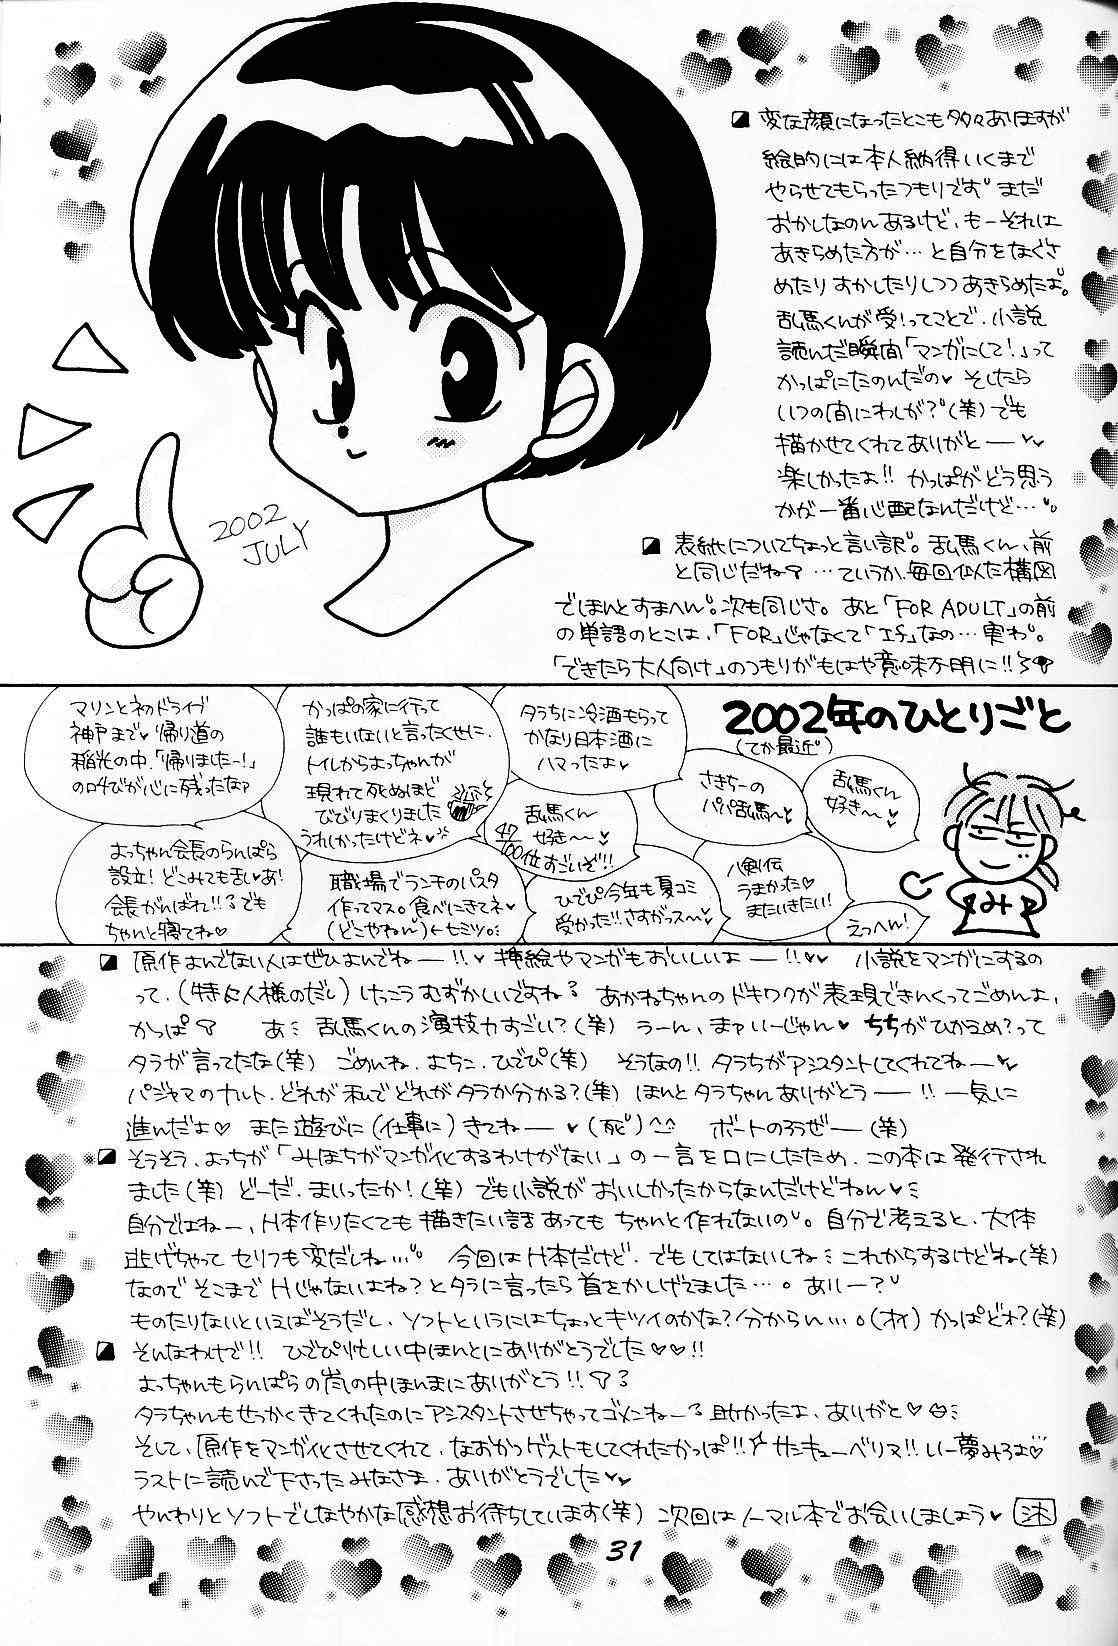 変な顔になったとこも多々ありますが
絵的には本人納得いくまで
やらせてもらったつもりです。まだ
おかしなのんあるけど、もーそれは
あきらめた方が…と自分をなぐさ
めたりおかしたりしつつあきらめたよ。
乱馬くんが受!ってことで、小説
読んだ瞬間「マンガにして!」って
かっぱにたのんだの♥ そしたら
いつの間にわしが?(笑)でも
描かせてくれてありがとー♥♥
楽しかったよ!! かっぱがどう思う
かが一番心配なんだけど…。
2002
JULY
表紙についてちょっと言い訳。乱馬くん、前
と同じだね …ていうか、毎回似た構図
でほんとすまへん。次も同じさ。あと「FOR ADULT」の前
の単語のとこは、「FOR」じゃなくて「If」なの…実わ。
「できたら大人向け」のつもりがもはや意味不明に!!
2002年のひとりごと
(てか最近)
マリンとネのドライブ
神戸まで♥帰り道の
稲光の中、「帰りましたー!」
の叫びが心に残ったなァ
かっぱの家に行って
誰もいないと言ったくせに、
トイレからよっちゃんが
現れて死ぬほど
びびりまくりました
うれしかったけどネ♥
タラちに冷酒もらって
かなり日本酒に
ハマったよ♥
さきちーの
パパ乱馬〜♥
乱馬くん
好き〜♥
乱馬くん
好き〜♥
47/100位すごいぞ!!
よっちゃん会長のらんぱら
設立! どこみても乱♥あ!
会長がんばれ!!でも
ちゃんと寝てね♥
職場でランチのパスタ
作ってマス。食べにきてネ♥
(どこやねん)←七ミツ
ひでぴ今年も夏コミ
受かった!!さすがっス〜♥
八剣伝
うまかった♥
またいきたい!
えっへん!
み
原作よんでない人はぜひよんでねー!!♥ 挿絵やマンガもおいしいよー!!♥♥ 小説をマンガにするの
って、(特に人様のだし)けっこうむずかしいですね あかねちゃんのドキワクが表現できんくってごめんよ、
かっぱ あ 乱馬くんの演技力すごい?(笑) うーん、まァいーじゃん♥ ちちがひかえめ?って
タラが言ってたな(笑) ごめんね、よちこ、ひでぴ(笑) そうなの!! タラちがアシスタントしてくれてねー♥
パジャマのナルト、どれが私でどれがタラか分かる?(笑) ほんとタラちゃんありがとうー!! 一気に
進んだよ♡ また遊びに(仕事に)きてねー♥(死)^^ ボートのろうぜー(笑)
そうそう、よっちが「みほちがマンガ化とするわけがない」の一言を口にしたため、この本は発行され
ました(笑) どーだ、まいったか!(笑) でも小説がおいしかったからなんだけどねん♥
自分ではねー、H本作りたくても描きたい話あってもちゃんと作れないの。自分で考えると、大体
逃げちゃってセリフも変だしね…。 今回はH本だけど、でもしてはないしね これからするけどね(笑)
なのでそこまでHじゃないよね?とタラに言ったら首をかしげてました…。 あリー?
ものたりないといえばそうだし、ソフトというにはちょっとキツイのかな?分からん…。(オイ) かっぱどお?(笑)
そんなわけで!! ひでぴ忙しい中ほんとにありがとうでした♡♡!!
よっちゃんもらんぱらの嵐の中ほんまにありがとう!!
タラちゃんもせっかくきてくれたのにアシスタントさせちゃってゴメンねー 助かったよ、ありがと♡
そして、原作をマンガ化させてくれて、なおかつゲストもしてくれたかっぱ!! サンキューベリマ!! いー夢みろよ♡
ラストに読んで下さったみなさま、ありがとうでした♥♥
やんわりとソフトでしなやかな感想お待ちしています(笑) 次回はノーマル本でお会いしましょう♥
31